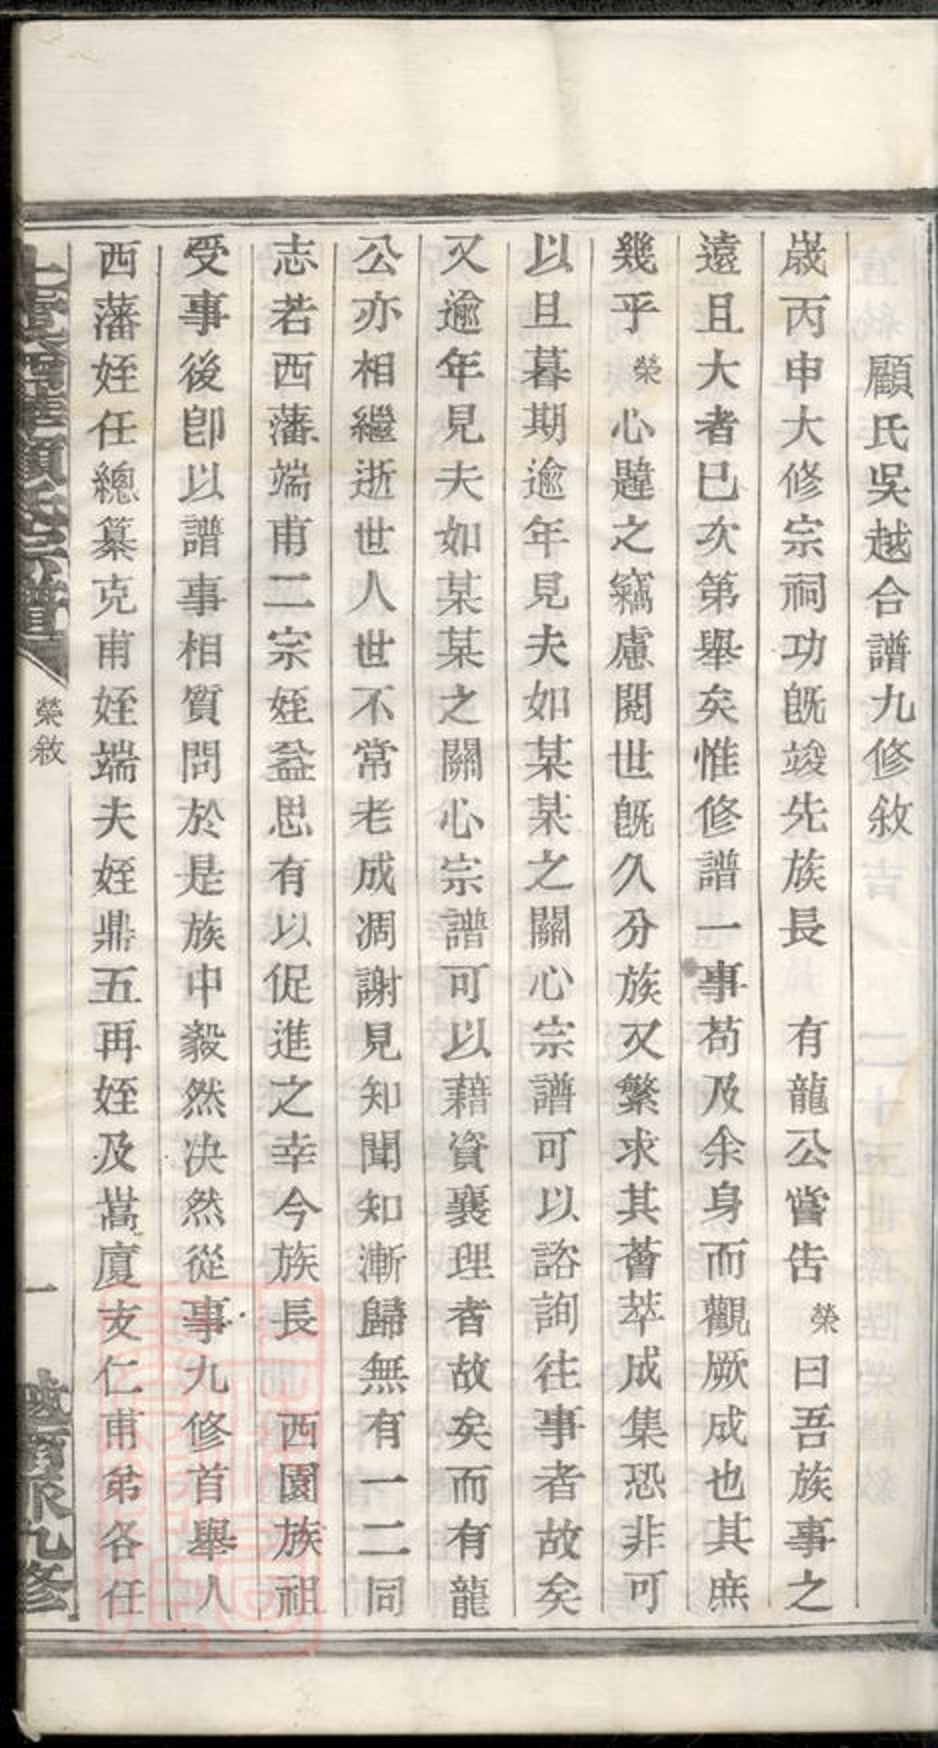 顧氏吳越合譜九修敘
歲丙申大修宗祠功旣竣先族長　有龍公嘗告榮曰吾族事之
遠且大者已次第舉矣惟修譜一事苟及余身而觀厥成也其庶
幾乎榮心韙之竊慮閱世旣久分族又繁求其薈萃成集恐非可
以旦暮期逾年見夫如某某之關心宗譜可以諮詢往事者故矣
又逾年見夫如某某之關心宗譜可以藉資襄理者故矣而有龍
公亦相繼逝世人世不常老成凋謝見知聞知漸歸無有一二同
志若西藩端甫二宗姪益思有以促進之幸今族長　西園族祖
受事後卽以譜事相質問於是族中毅然決然從事九修首舉人
西藩姪任總纂克甫姪端夫姪鼎五再姪及嵩廈友仁甫弟各任
顧氏宗譜
榮敘
一
九修